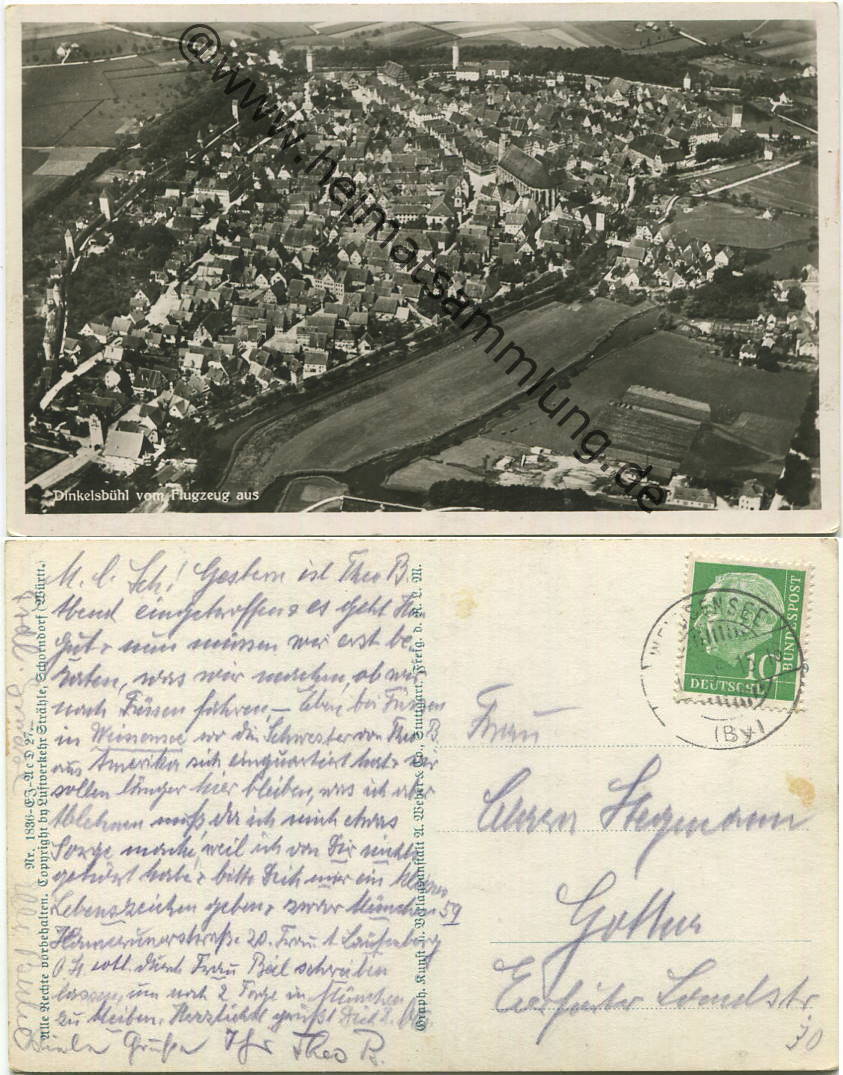 @www.heimatsammlung.de
Dinkelsbühl vom Flugzeug aus
Nr. 1836-EJ-AcD 27
Alle Rechte vorbehalten. Copyright by Luftverkehr Strähle, Schorndorf (Württ.)
Graph. Kunst- u. Verlagsanstalt A. Weber & Co., Stuttgart. Freig. d. R. L. M.
M. l. Sch! Gestern ist Theo B.
Abend eingetroffen es geht
gut nun müssen wir erst be-
raten, was wir machen, ob wir
nach Füssen fahren – Eben bei Füssen
in wo die Schwester von Theo B.
aus Amerika sich einquartiert hat. Wir
sollen länger hier bleiben, was ich aber
Ablehnen muß, da ich mich etwas
Sorge mache, weil ich von Dir nichts
gehört habe, bitte Dich mir ein kleines
Lebenszeichen geben, zwar München 59
20. Frau
durch Frau Beil schreiben
lassen, um noch 2 Tage in München
zu bleiben. Herzlichst grüßt Dich
Viele Grüße Ihr Theo B.
WEISSENSEE
(BAY)
10
DEUTSCHE
BUNDESPOST
Frau
Stegmann
Gotha
Erfurter Landstr.